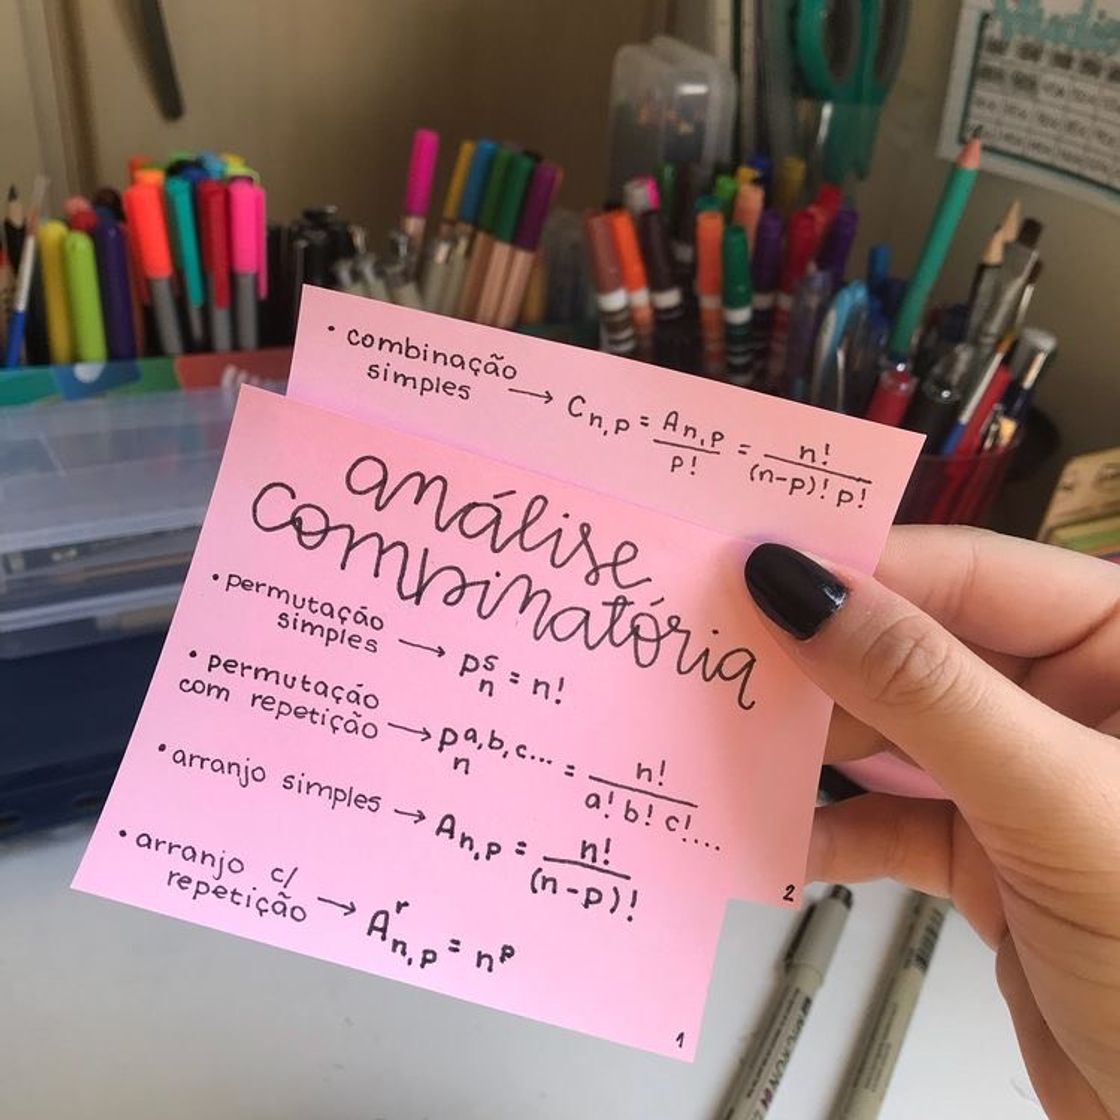 • combinação
simples → C n,p = A n,p / p! = n! / (n-p)! p!
análise
combinatória
• permutação
simples → P s n = n!
• permutação
com repetição → P a,b,c... n = n! / a! b! c!....
• arranjo simples → A n,p = n! / (n-p)!
• arranjo c/
repetição → A r n,p = n^p
2
1